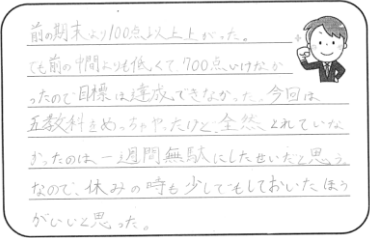 前の期末より100点以上上がった。
でも前の中間よりも低くて、700点いけなか
ったので目標は達成できなかった。今回は
五教科をめっちゃやったけど、全然とれていな
かったのは一週間無駄にしたせいだと思う
なので、休みの時も少しでもしておいたほう
がいいと思った。